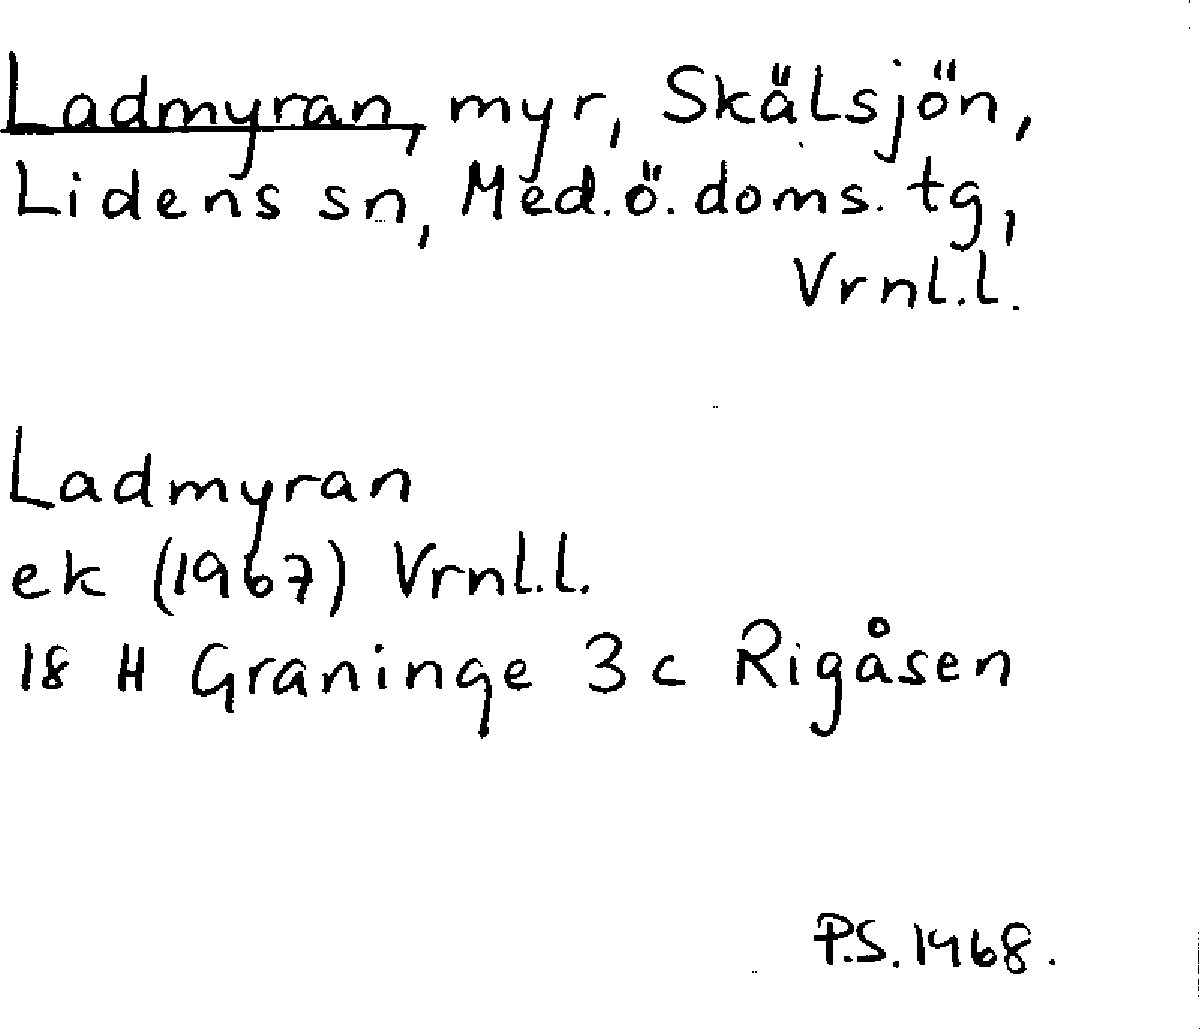 Ladmyran, myr, Skälsjön,
Lidens sn, Med.ö.doms.tg,
Vrnl.l.
Ladmyran
ek (1967) Vrnl.l.
18 H Graninge 3 c Rigåsen
P.S. 1968.